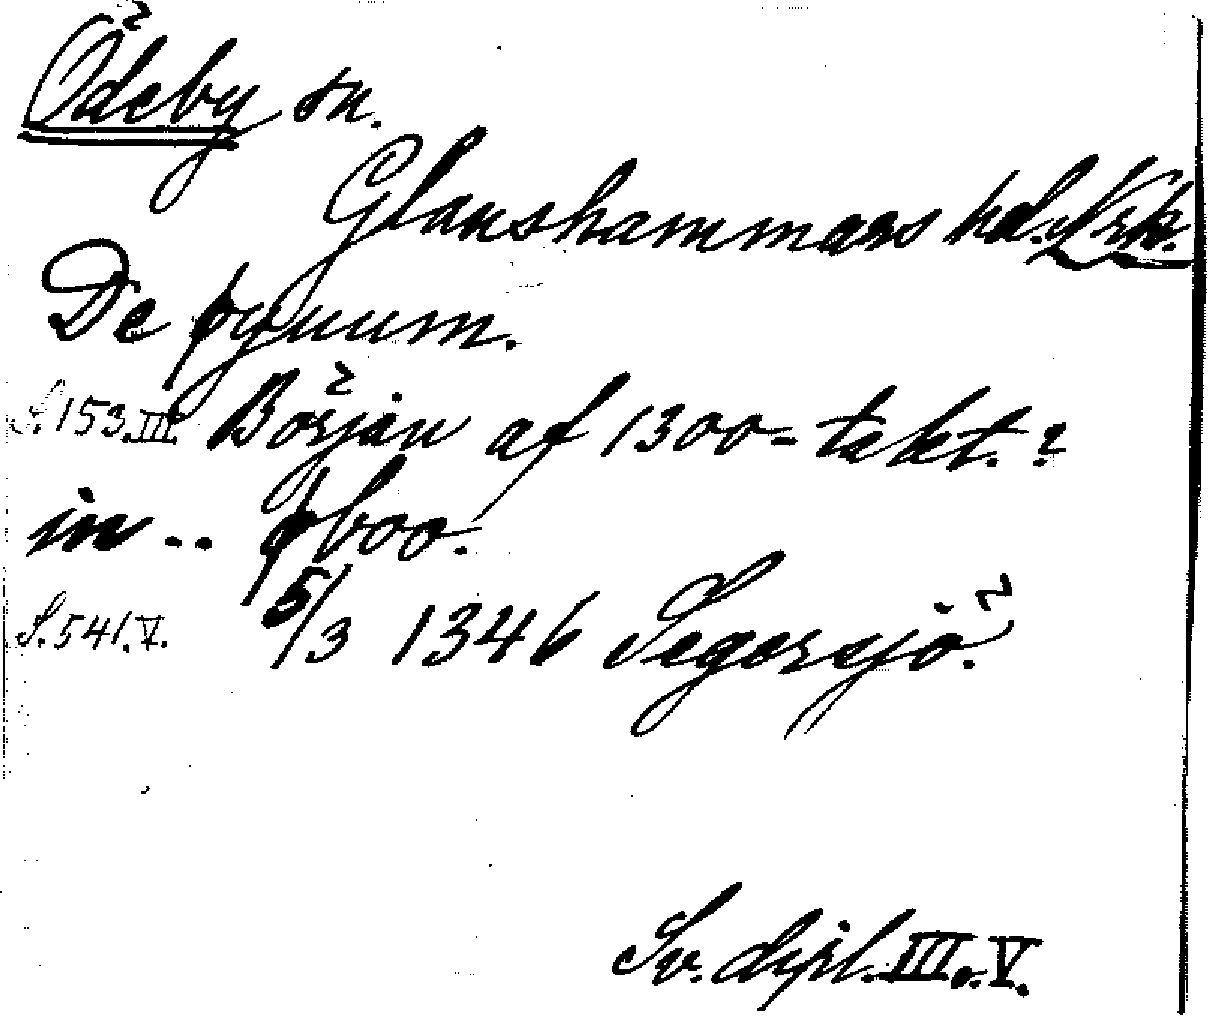 Ödeby sn.
Glanshammars hd. Nrk.
De øyuum.
S.153.III. Början af 1300-takt.?
in .. øboo.
S.541.V. 5/3 1346 Segersjö.
Sv. dipl. III.V.